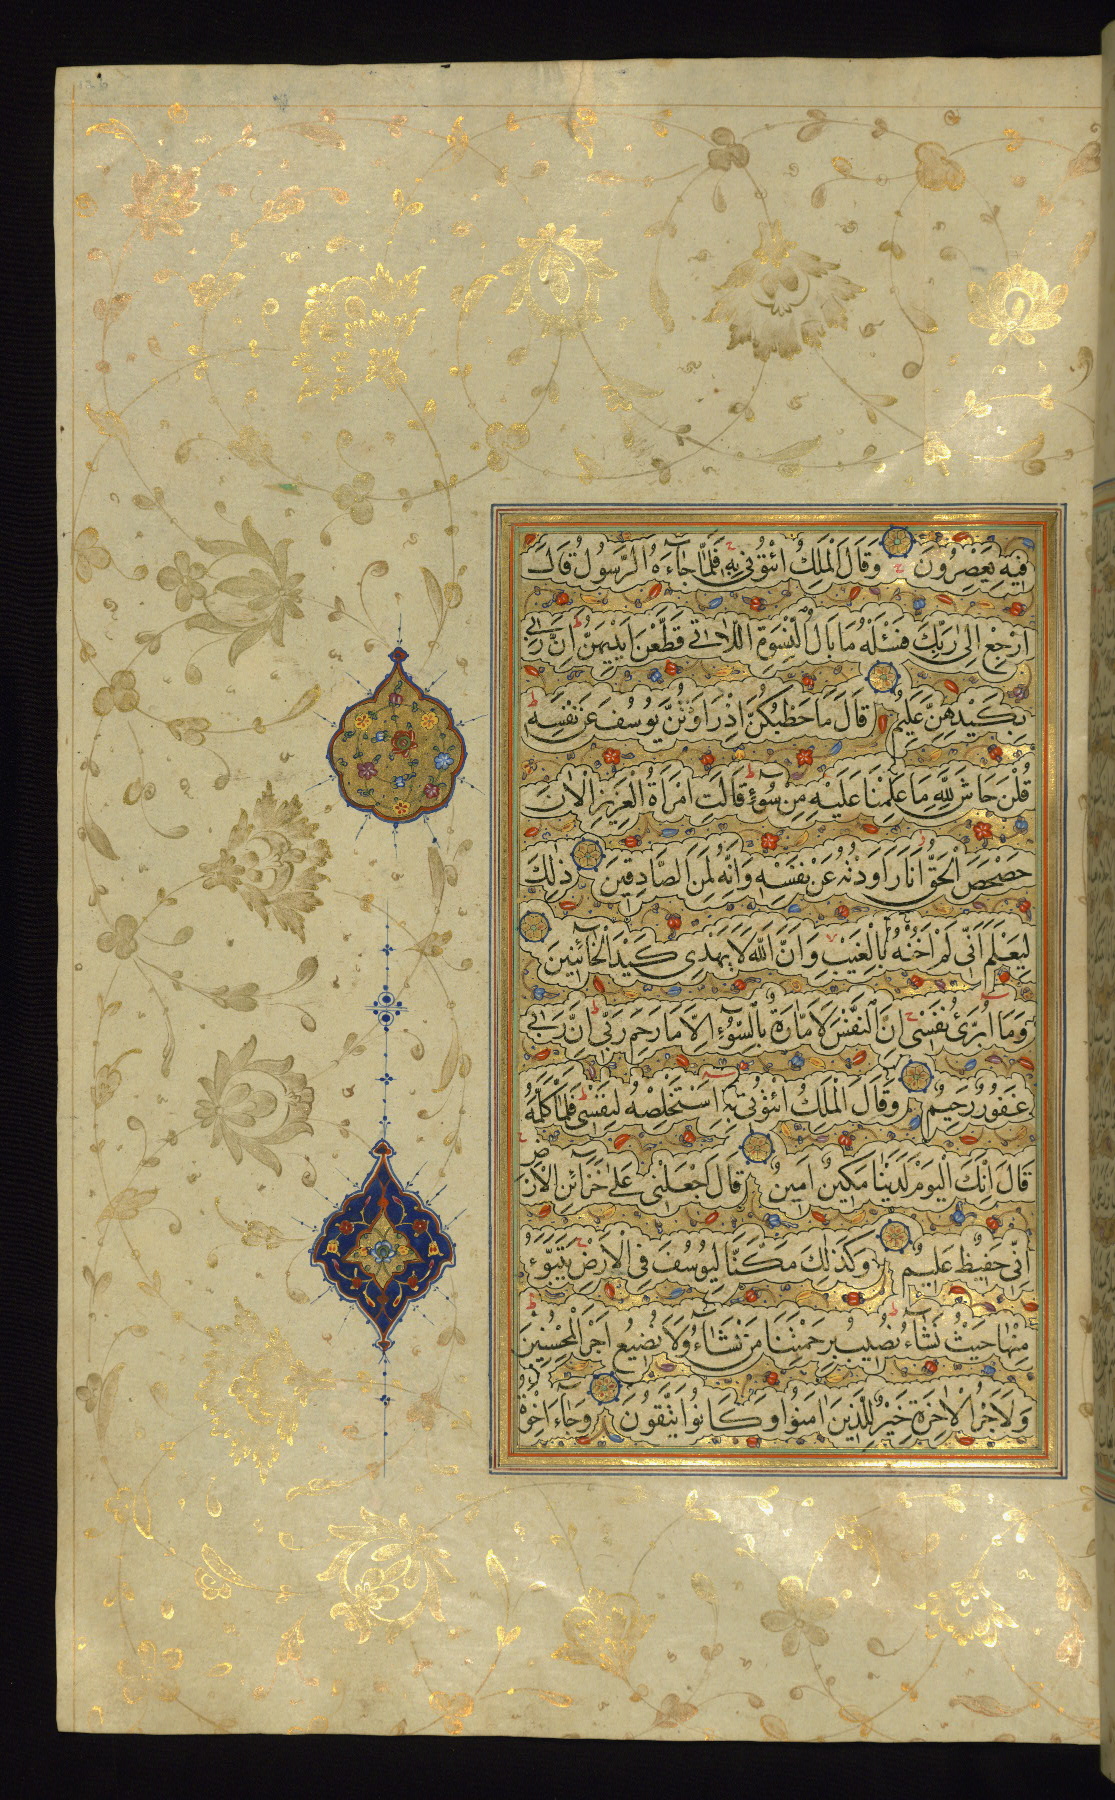 فِيهِ يَعْصِرُونَ وَقَالَ الْمَلِكُ ائْتُونِي بِهِ فَلَمَّا جَاءَهُ الرَّسُولُ قَالَ
ارْجِعْ إِلَى رَبِّكَ فَسْئَلْهُ مَا بَالُ النِّسْوَةِ اللَّاتِي قَطَّعْنَ أَيْدِيَهُنَّ إِنَّ رَبِّي
بِكَيْدِهِنَّ عَلِيمٌ قَالَ مَا خَطْبُكُنَّ إِذْ رَاوَدْتُنَّ يُوسُفَ عَنْ نَفْسِهِ
قُلْنَ حَاشَ لِلَّهِ مَا عَلِمْنَا عَلَيْهِ مِنْ سُوءٍ قَالَتِ امْرَأَةُ الْعَزِيزِ الْآنَ
حَصْحَصَ الْحَقُّ أَنَا رَاوَدْتُهُ عَنْ نَفْسِهِ وَإِنَّهُ لَمِنَ الصَّادِقِينَ ذَلِكَ
لِيَعْلَمَ أَنِّي لَمْ أَخُنْهُ بِالْغَيْبِ وَأَنَّ اللَّهَ لَا يَهْدِي كَيْدَ الْخَائِنِينَ
وَمَا أُبَرِّئُ نَفْسِي إِنَّ النَّفْسَ لَأَمَّارَةٌ بِالسُّوءِ إِلَّا مَا رَحِمَ رَبِّي إِنَّ رَبِّي
غَفُورٌ رَحِيمٌ وَقَالَ الْمَلِكُ ائْتُونِي بِهِ أَسْتَخْلِصْهُ لِنَفْسِي فَلَمَّا كَلَّمَهُ
قَالَ إِنَّكَ الْيَوْمَ لَدَيْنَا مَكِينٌ أَمِينٌ قَالَ اجْعَلْنِي عَلَى خَزَائِنِ الْأَرْضِ
إِنِّي حَفِيظٌ عَلِيمٌ وَكَذَلِكَ مَكَّنَّا لِيُوسُفَ فِي الْأَرْضِ يَتَبَوَّءُ
مِنْهَا حَيْثُ يَشَاءُ نُصِيبُ بِرَحْمَتِنَا مَنْ نَشَاءُ وَلَا نُضِيعُ أَجْرَ الْمُحْسِنِينَ
وَلَأَجْرُ الْآخِرَةِ خَيْرٌ لِلَّذِينَ آمَنُوا وَكَانُوا يَتَّقُونَ وَجَاءَ إِخْوَةُ